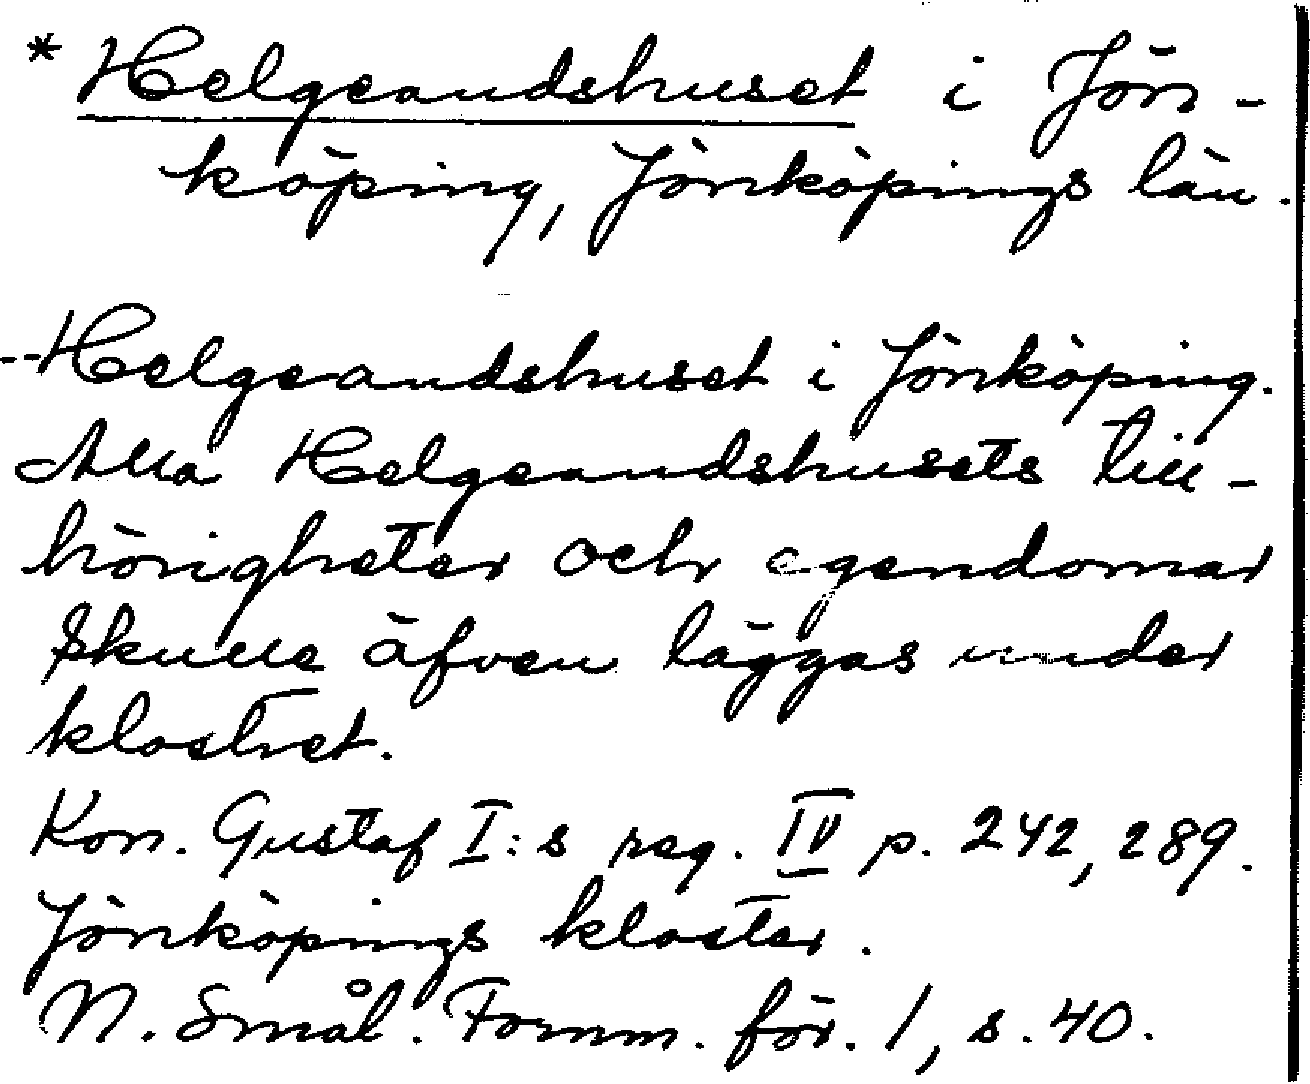 * Helgeandshuset i Jön-
köping, Jönköpings län.
--Helgeandshuset i Jönköping.
Alla Helgeandshusets till-
hörigheter och egendomar
skulle äfven läggas under
klostret.
Kon. Gustaf I:s reg. IV p. 242, 289.
Jönköpings kloster.
N. Smål. Fornm. för. 1, s. 40.